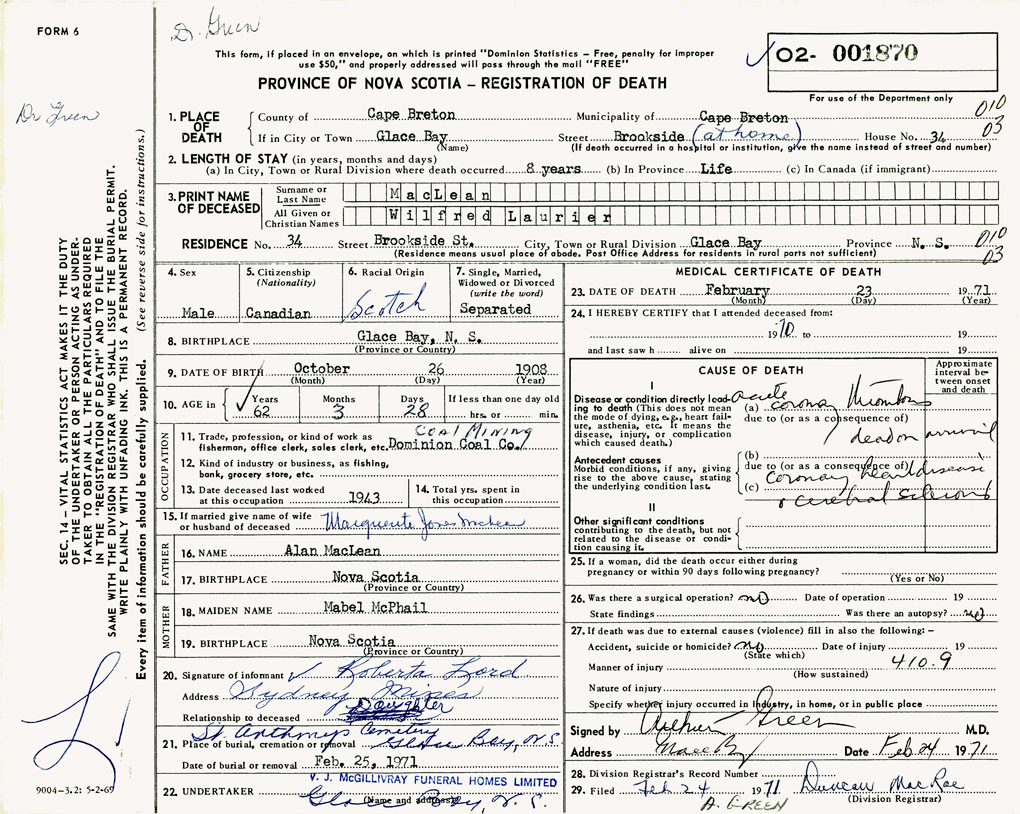 FORM 6
Dr. Green
This form, if placed in an envelope, on which is printed "Dominion Statistics – Free, penalty for improper
use $50," and properly addressed will pass through the mail "FREE"
PROVINCE OF NOVA SCOTIA – REGISTRATION OF DEATH
O2- 001870
For use of the Department only
Dr Green
010
03
1. PLACE OF DEATH
County of Cape Breton Municipality of Cape Breton
If in City or Town Glace Bay Street Brookside (at home) House No. 34
(Name) (If death occurred in a hospital or institution, give the name instead of street and number)
2. LENGTH OF STAY (in years, months and days)
(a) In City, Town or Rural Division where death occurred 8 years (b) In Province Life (c) In Canada (if immigrant)
3. PRINT NAME OF DECEASED
Surname or Last Name MacLean
All Given or Christian Names Wilfred Laurier
RESIDENCE No. 34 Street Brookside St. City, Town or Rural Division Glace Bay Province N. S.
(Residence means usual place of abode. Post Office Address for residents in rural parts not sufficient)
010
03
4. Sex
Male
5. Citizenship
(Nationality)
Canadian
6. Racial Origin
Scotch
7. Single, Married,
Widowed or Divorced
(write the word)
Separated
8. BIRTHPLACE Glace Bay, N. S.
(Province or Country)
9. DATE OF BIRTH October 26 1908
(Month) (Day) (Year)
10. AGE in Years Months Days If less than one day old
62 3 28 hrs. or min.
OCCUPATION
COAL MINING
11. Trade, profession, or kind of work as
fisherman, office clerk, sales clerk, etc. Dominion Coal Co.
12. Kind of industry or business, as fishing,
bank, grocery store, etc.
13. Date deceased last worked
at this occupation 1943
14. Total yrs. spent in
this occupation
15. If married give name of wife
or husband of deceased Marguerite Jones McLean
FATHER
16. NAME Alan MacLean
17. BIRTHPLACE Nova Scotia
(Province or Country)
MOTHER
18. MAIDEN NAME Mabel McPhail
19. BIRTHPLACE Nova Scotia
(Province or Country)
20. Signature of informant Roberta Lord
Address Sydney Mines
Relationship to deceased Daughter
St. Anthonys Cemetery
21. Place of burial, cremation or removal Glace Bay, N.S.
Date of burial or removal Feb. 25, 1971
V. J. McGILLIVRAY FUNERAL HOMES LIMITED
22. UNDERTAKER Glace Bay, N. S.
(Name and address)
MEDICAL CERTIFICATE OF DEATH
23. DATE OF DEATH February 23 1971
(Month) (Day) (Year)
24. I HEREBY CERTIFY that I attended deceased from:
1970 to 19
and last saw h alive on 19
CAUSE OF DEATH
Approximate
interval be-
tween onset
and death
I
Disease or condition directly lead-
ing to death (This does not mean
the mode of dying, e.g., heart fail-
ure, asthenia, etc. It means the
disease, injury, or complication
which caused death.)
(a) acute coronary thrombosis
due to (or as a consequence of)
dead on arrival
Antecedent causes
Morbid conditions, if any, giving
rise to the above cause, stating
the underlying condition last.
(b)
due to (or as a consequence of)
(c) coronary heart disease
&
II
Other significant conditions
contributing to the death, but not
related to the disease or condi-
tion causing it.
25. If a woman, did the death occur either during
pregnancy or within 90 days following pregnancy?
(Yes or No)
26. Was there a surgical operation? no Date of operation 19
State findings Was there an autopsy? no
27. If death was due to external causes (violence) fill in also the following:–
Accident, suicide or homicide? no Date of injury 19
(State which)
410.9
Manner of injury
(How sustained)
Nature of injury
Specify whether injury occurred in Industry, in home, or in public place
Signed by Arthur Green M.D.
Address Date Feb 24 1971
28. Division Registrar's Record Number
29. Filed Feb 24 1971 Duncan MacRae
(Division Registrar)
A. GREEN
SEC. 14 – VITAL STATISTICS ACT MAKES IT THE DUTY
OF THE UNDERTAKER OR PERSON ACTING AS UNDER-
TAKER TO OBTAIN ALL THE PARTICULARS REQUIRED
IN THE "REGISTRATION OF DEATH" AND TO FILE THE
SAME WITH THE DIVISION REGISTRAR WHO SHALL ISSUE THE BURIAL PERMIT.
WRITE PLAINLY WITH UNFADING INK. THIS IS A PERMANENT RECORD.
Every item of information should be carefully supplied. (See reverse side for instructions.)
9004-3.2: 5-2-69